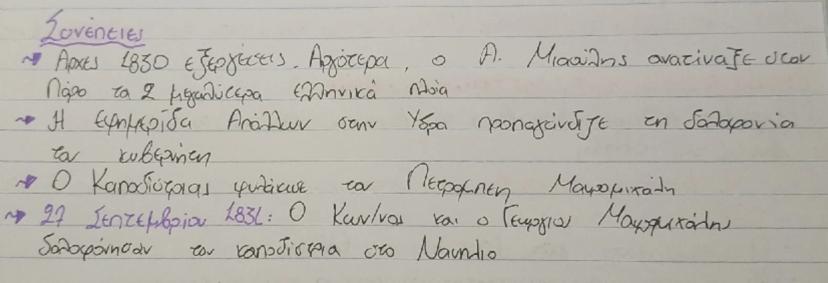 Συνέπειες
→ Αρχές 1830 εξεργέσεις. Αργότερα, ο Α. Μιαούλης ανατίναξε στον
Πόρο τα 2 μεγαλύτερα ελληνικά πλοία
→ Η εφημερίδα Απόλλων στην Υδρα προπαγάνδιζε τη δολοφονία
του κυβερνήτη
→ Ο Καποδίστριας φυλάκισε τον Πετρόμπεη Μαυρομιχάλη
→ 27 Σεπτεμβρίου 1831: Ο Κων/νος και ο Γεωργιος Μαυρομιχάλης
δολοφόνησαν τον καποδίστρια στο Ναυπλιο